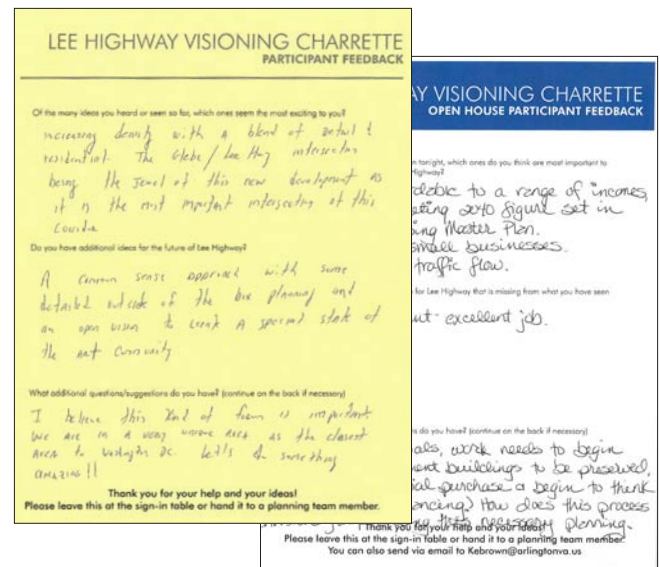 LEE HIGHWAY VISIONING CHARRETTE
PARTICIPANT FEEDBACK
Of the many ideas you heard or seen so far, which ones seem the most exciting to you?
increasing density with a blend of retail &
residential. The Glebe/Lee Hwy intersection
being the jewel of this new development as
it is the most important intersection of this
Corridor
Do you have additional ideas for the future of Lee Highway?
A common sense approach with some
detailed outside of the box planning and
an open vision to create A special state of
the art Community
What additional questions/suggestions do you have? (continue on the back if necessary)
I believe this kind of forum is important
We are in a very unique Area as the closest
Area to Washington DC. Let's do something
amazing!!
Thank you for your help and your ideas!
Please leave this at the sign-in table or hand it to a planning team member.
AY VISIONING CHARRETTE
OPEN HOUSE PARTICIPANT FEEDBACK
n tonight, which ones do you think are most important to
Highway?
rdable to a range of incomes,
eting 2040 figure set in
ing Master Plan.
small businesses.
traffic flow.
for Lee Highway that is missing from what you have seen
ut - excellent job.
ns do you have? (continue on the back if necessary)
als, work needs to begin
ent buildings to be preserved,
ial purchase & begin to think
ancing? How does this process
necessary planning.
Thank you for your help and your ideas!
Please leave this at the sign-in table or hand it to a planning team member.
You can also send via email to Kebrown@arlingtonva.us